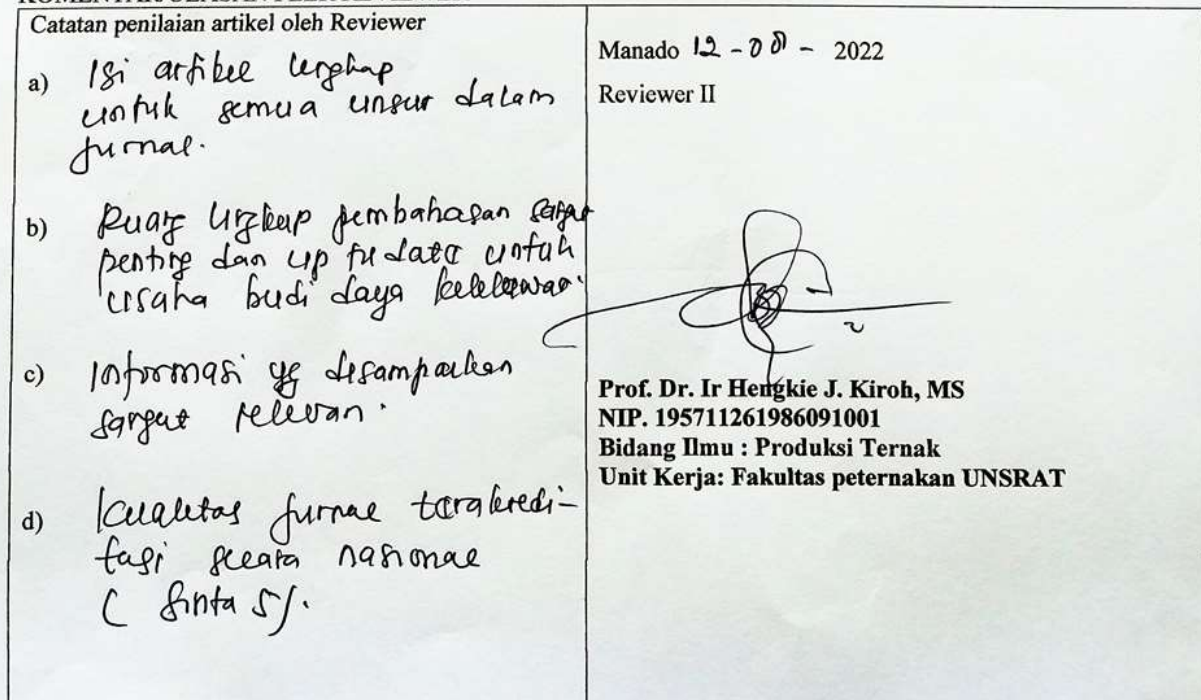 Catatan penilaian artikel oleh Reviewer
a) Isi artikel lengkap
untuk semua unsur dalam
jurnal.
b) Ruang lingkup pembahasan sangat
penting dan up to date untuk
usaha budi daya
c) Informasi yg disampaikan
sangat relevan.
d) Kualitas jurnal terakredi-
tasi secara nasional
( Sinta 5).
Manado 12 - - 2022
Reviewer II
Prof. Dr. Ir Hengkie J. Kiroh, MS
NIP. 195711261986091001
Bidang Ilmu : Produksi Ternak
Unit Kerja: Fakultas peternakan UNSRAT